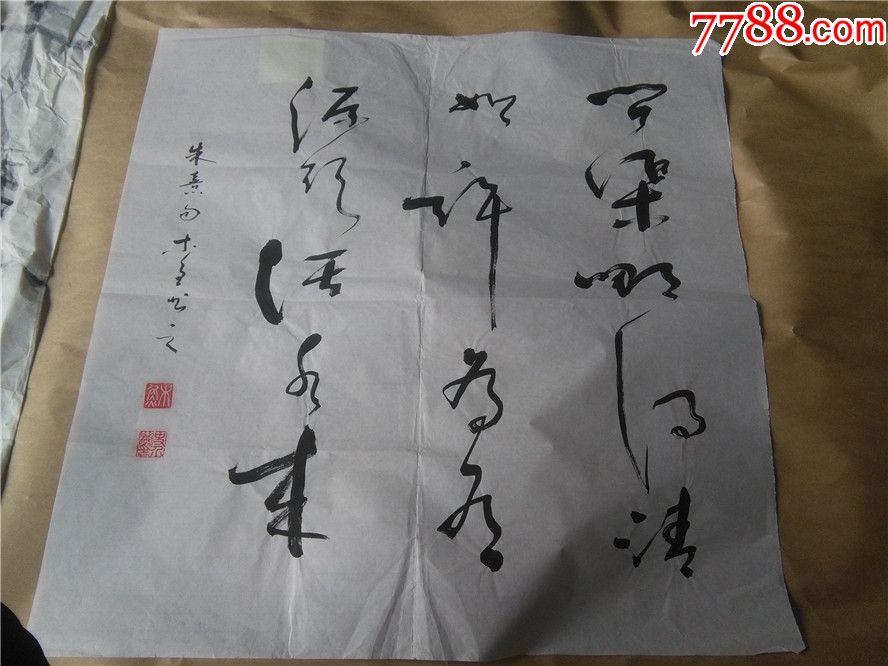 7788.com
问渠哪得清
如许为有
源头活水来
朱熹句 书之